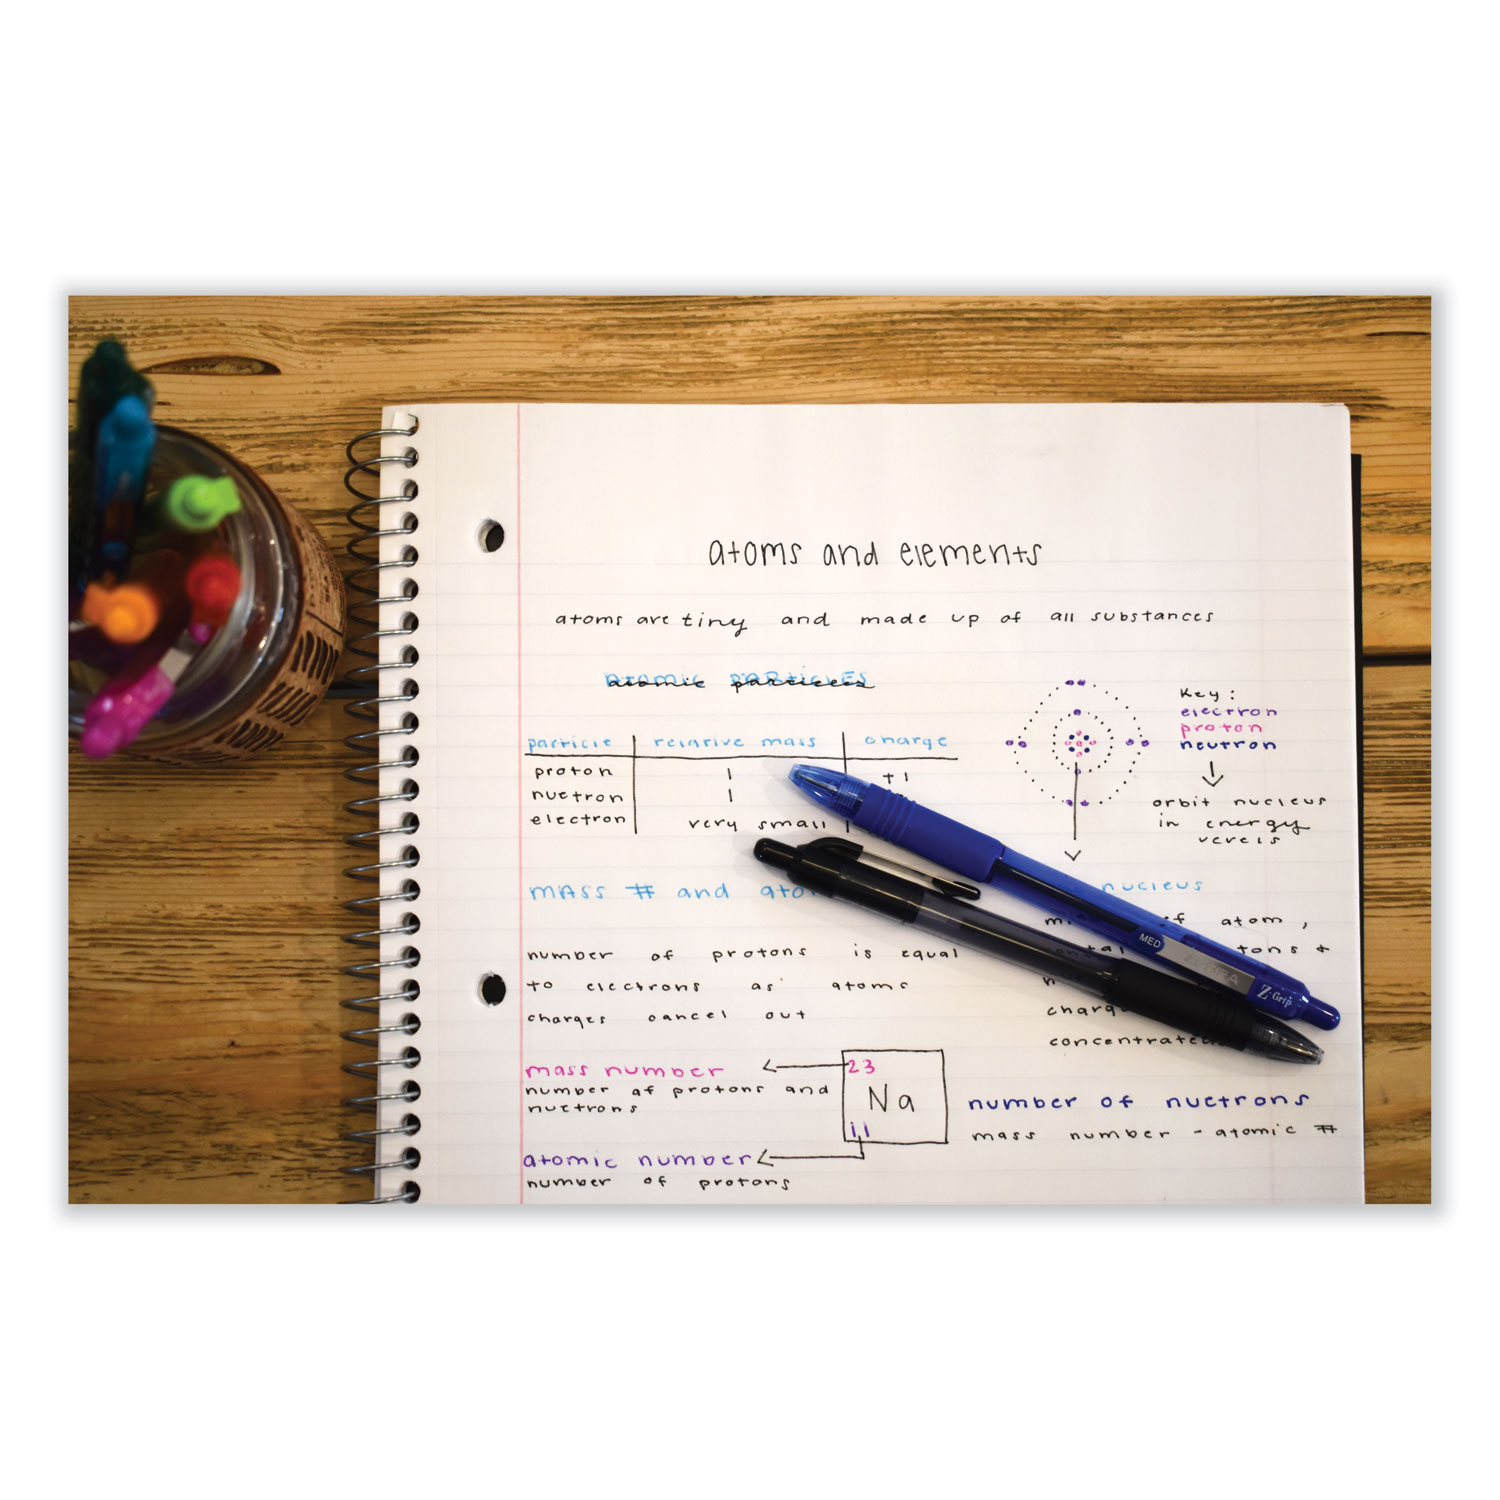 atoms and elements
atoms are tiny and made up of all substances
atomic particles
particle relative mass charge
proton 1 +1
nuetron 1
electron very small
Key:
electron
proton
neutron
orbit nucleus
in energy
MASS # and
nucleus
of atom,
number of protons is equal
to electrons as atoms
charges cancel out
concentrated
mass number
number of protons and
nuetrons
23
Na
11
atomic number
number of protons
number of nuetrons
mass number - atomic #
MED
ZEBRA
Z-Grip